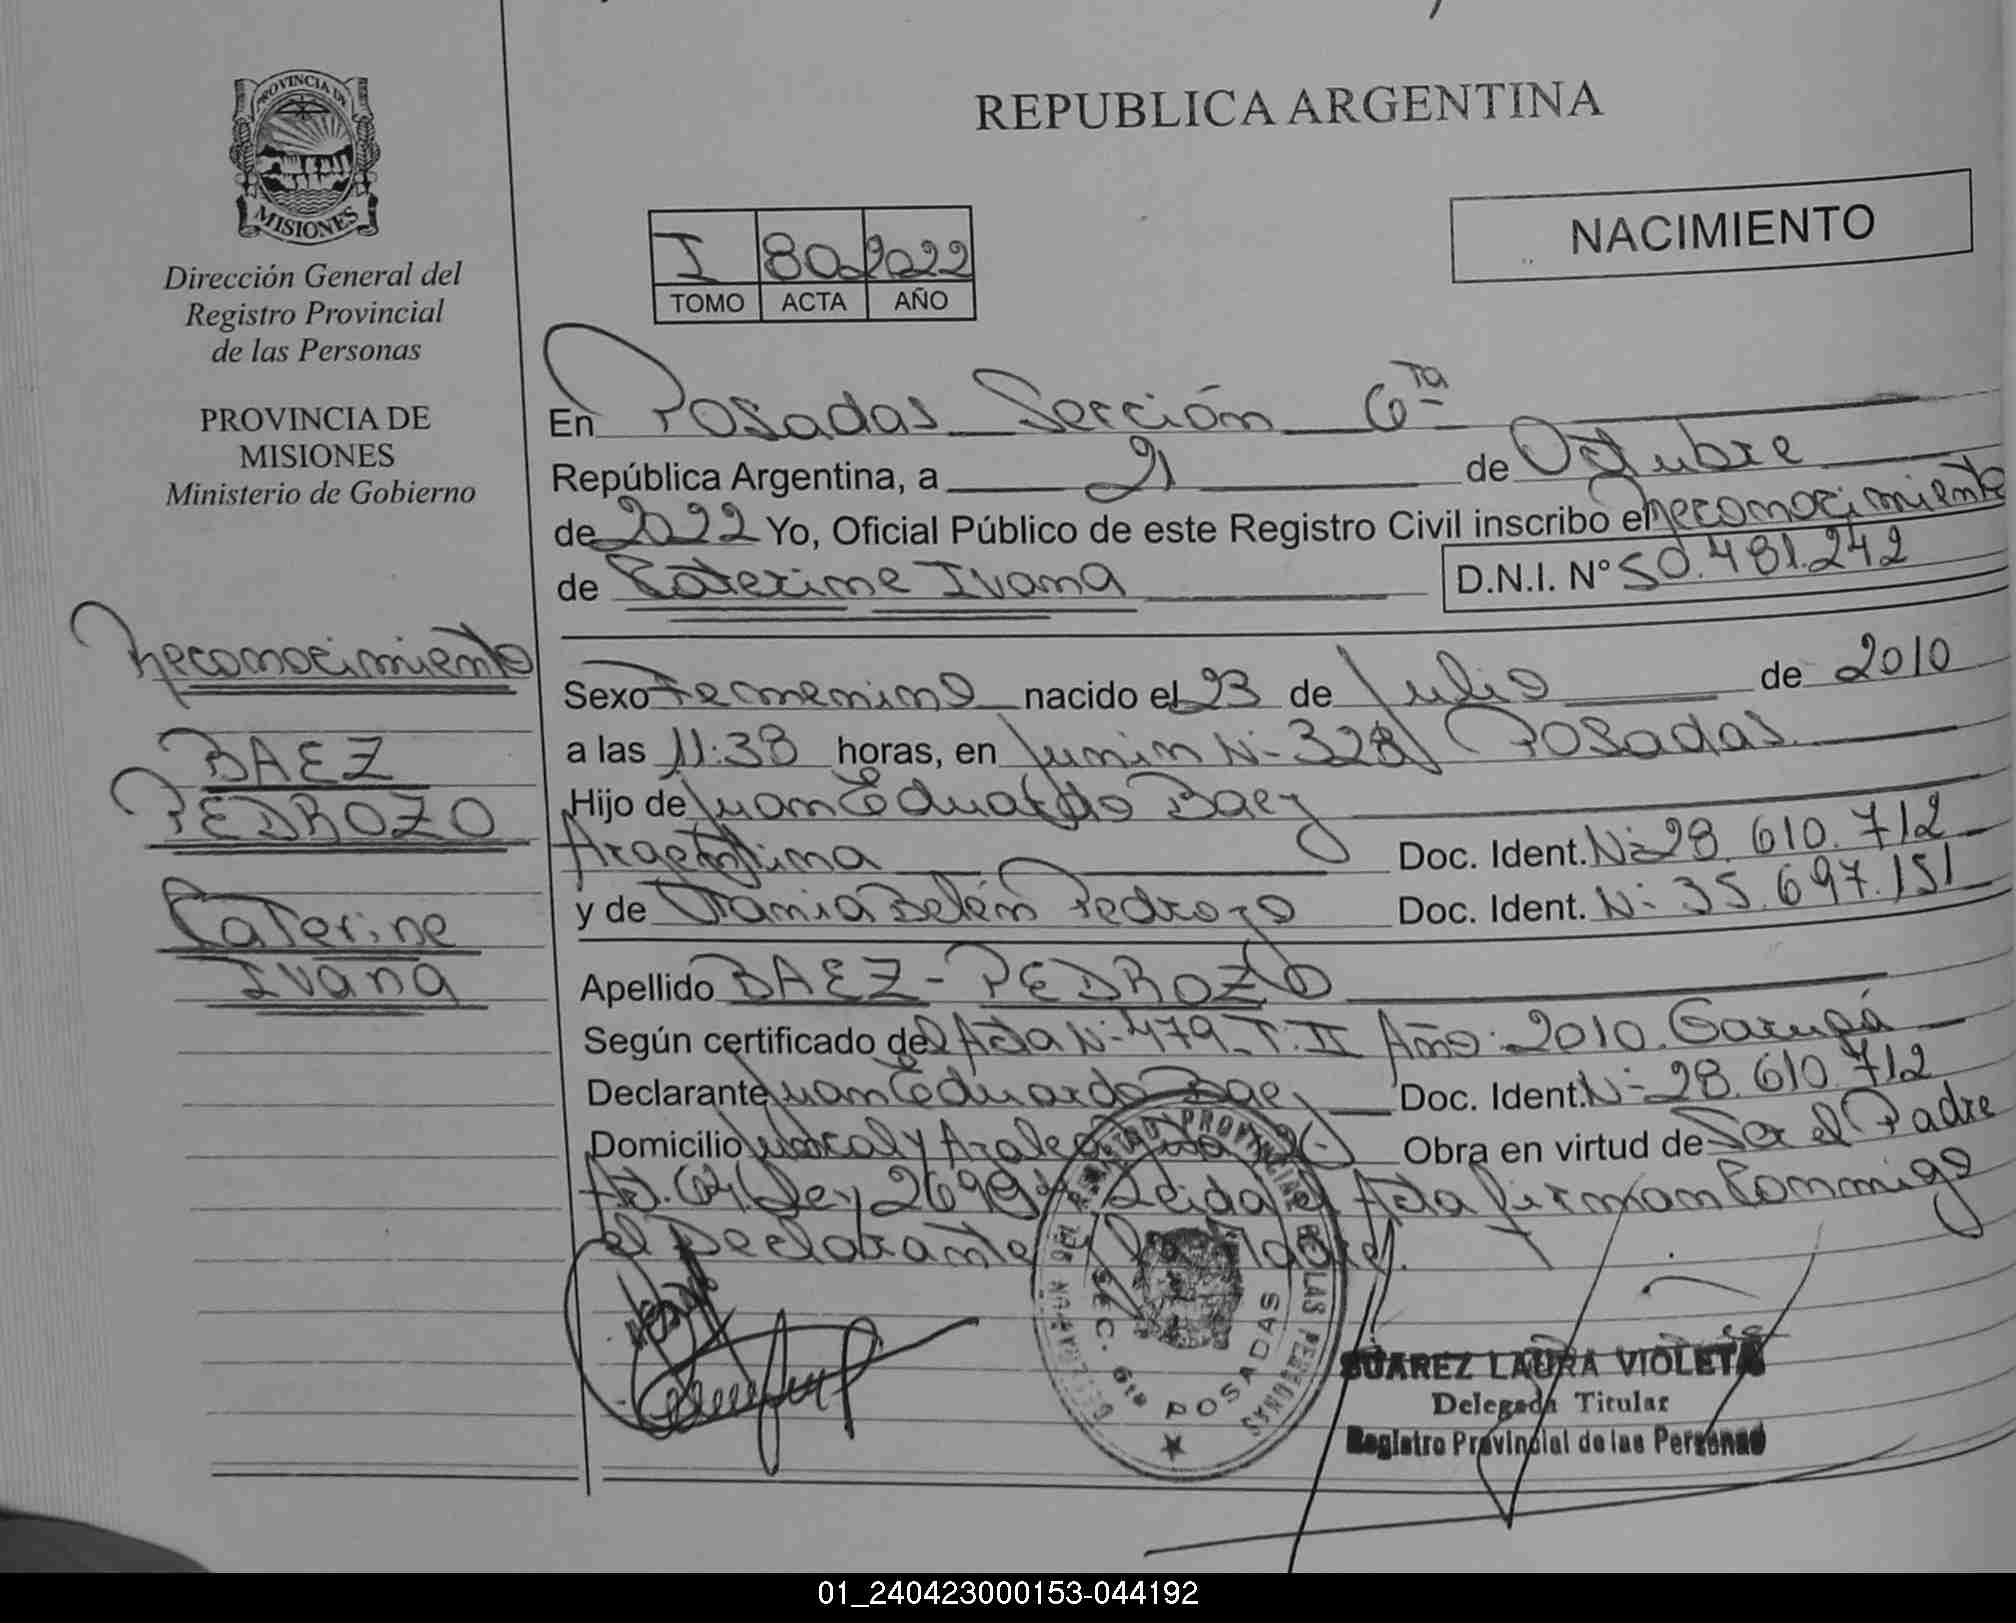 PROVINCIA DE
MISIONES
Dirección General del
Registro Provincial
de las Personas
PROVINCIA DE
MISIONES
Ministerio de Gobierno
Reconocimiento
BAEZ
PEDROZO
Caterine
Ivana
REPUBLICA ARGENTINA
NACIMIENTO
I 80 2022
TOMO ACTA AÑO
En Posadas Sección 6ta
República Argentina, a 21 de Octubre
de 2022 Yo, Oficial Público de este Registro Civil inscribo el reconocimiento
de Caterine Ivana D.N.I. Nº 50.481.242
Sexo Femenino nacido el 23 de Julio de 2010
a las 11:38 horas, en Junin Nº 328 Posadas
Hijo de Juan Eduardo Baez
Argentina Doc. Ident. Nº 28.610.712
y de Tamia Belén Pedrozo Doc. Ident. Nº 35.697.151
Apellido BAEZ - PEDROZO
Según certificado del Acta Nº 479 T. II Año: 2010. Garupá
Declarante Juan Eduardo Baez Doc. Ident. Nº 28.610.712
Domicilio y Obra en virtud de Ser el Padre
Ley 26994 Leida el Acta firman Conmigo
el Declarante
REGISTRO PROVINCIAL DE LAS PERSONAS
SEC. 6ta POSADAS
SUAREZ LAURA VIOLETA
Delegada Titular
Registro Provincial de las Personas
01_240423000153-044192